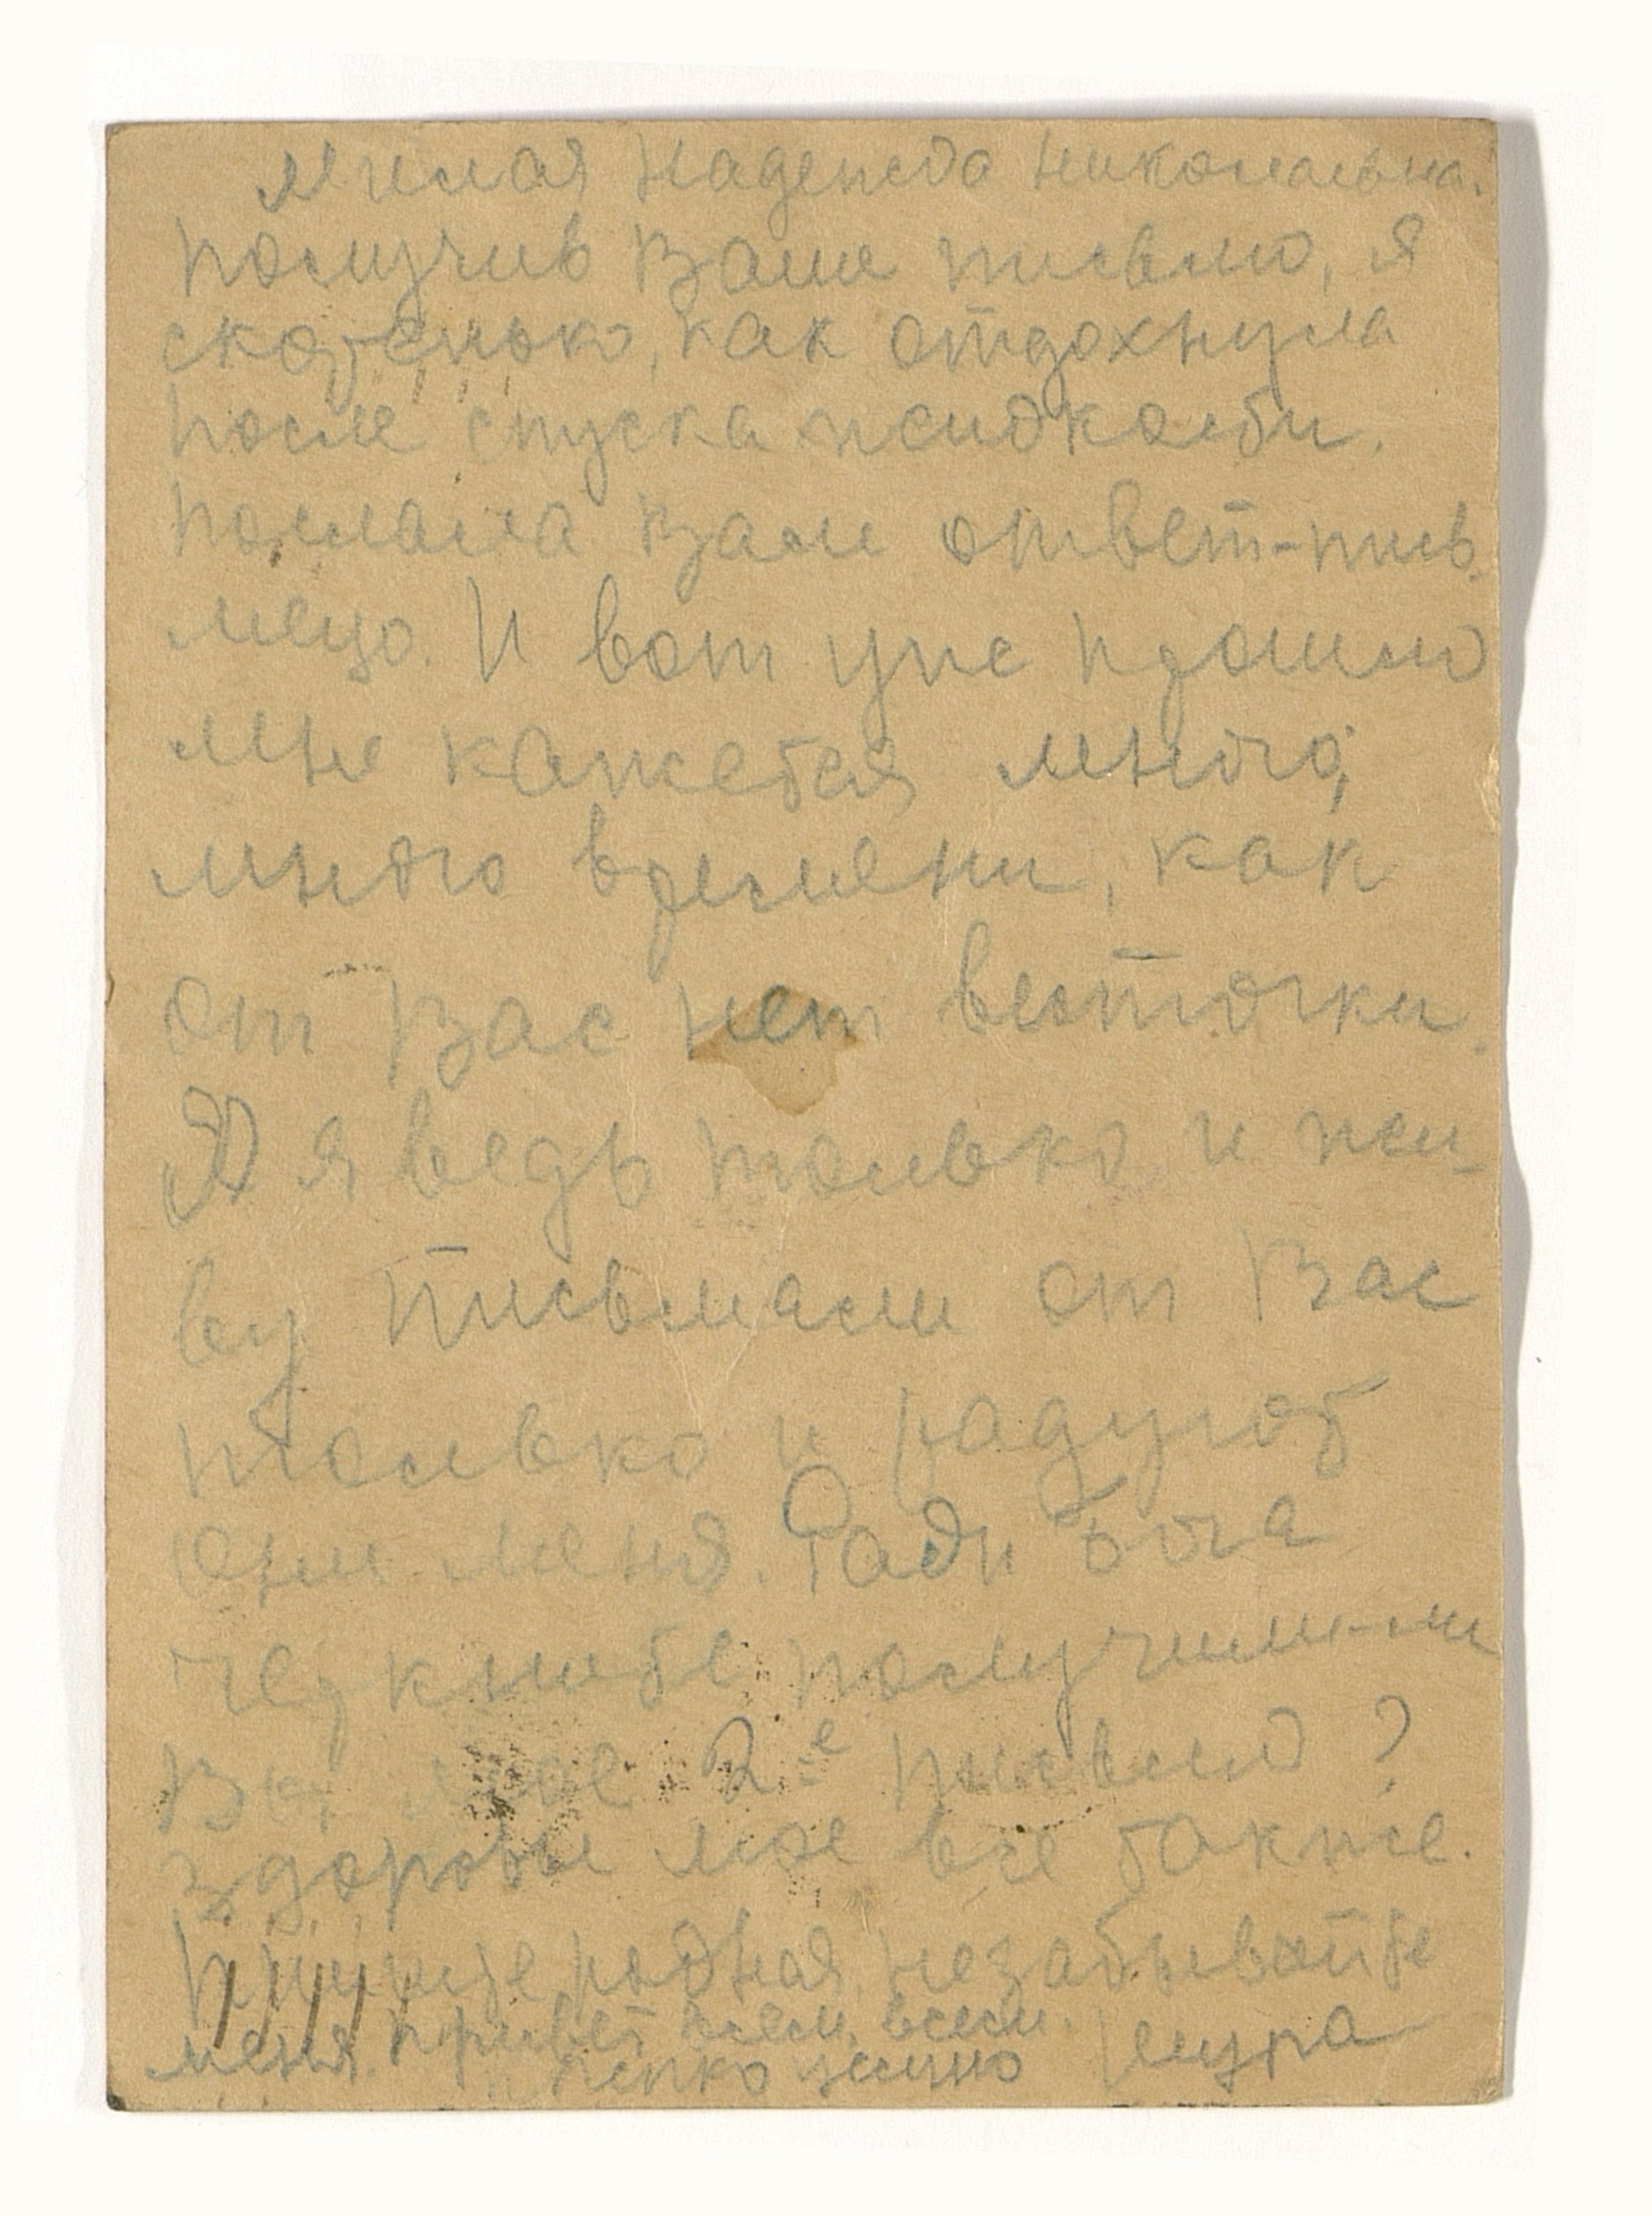 Милая Надежда Николаевна.
Получив Ваше письмо, я
как отдохнула
после спуска жидкости.
послала Вам ответ-пись
мецо. И вот уже прошло
мне кажется много,
много времени, как
от Вас нет весточки.
Я я ведь только и жи-
ву письмами от Вас
только и радуют
они меня. Ради бога
черкните получили-ли
Вы мое 2-е письмо?
здоровье мое все также.
Пишите родная, незабывайте
меня. Привет всем, всем.
крепко целую Шура